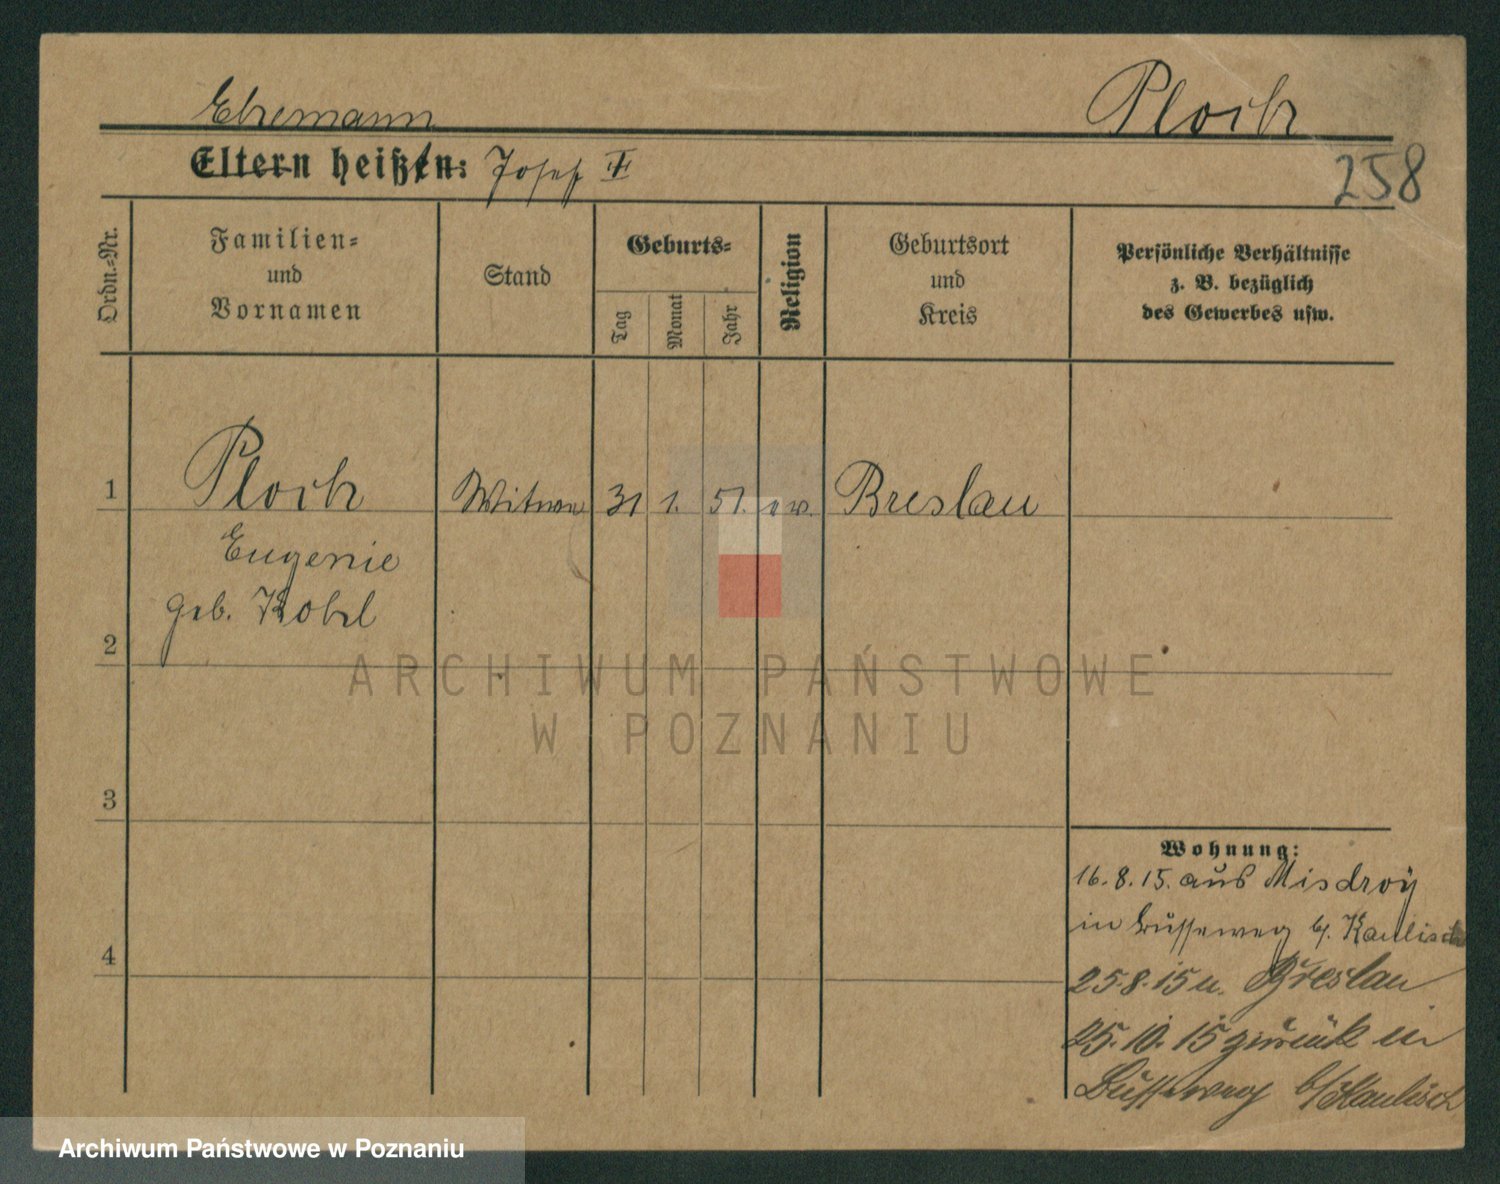 Ehemann
Ploch
258
Eltern heißen: Josef †
Ordn.-Nr.
Familien-
und
Vornamen
Stand
Geburts-
Tag
Monat
Jahr
Religion
Geburtsort
und
Kreis
Persönliche Verhältnisse
z. B. bezüglich
des Gewerbes usw.
1 Ploch Witwe 31 1. 51. ev. Breslau
Eugenie
geb. Kobel
2
ARCHIWUM PAŃSTWOWE
W POZNANIU
3
Wohnung:
16.8.15. aus Misdroy
in Busseweg b/. Kaulisch
4
25.8.15 n. Breslau
25.10.15 zurück in
Busseweg b/Kaulisch
Archiwum Państwowe w Poznaniu